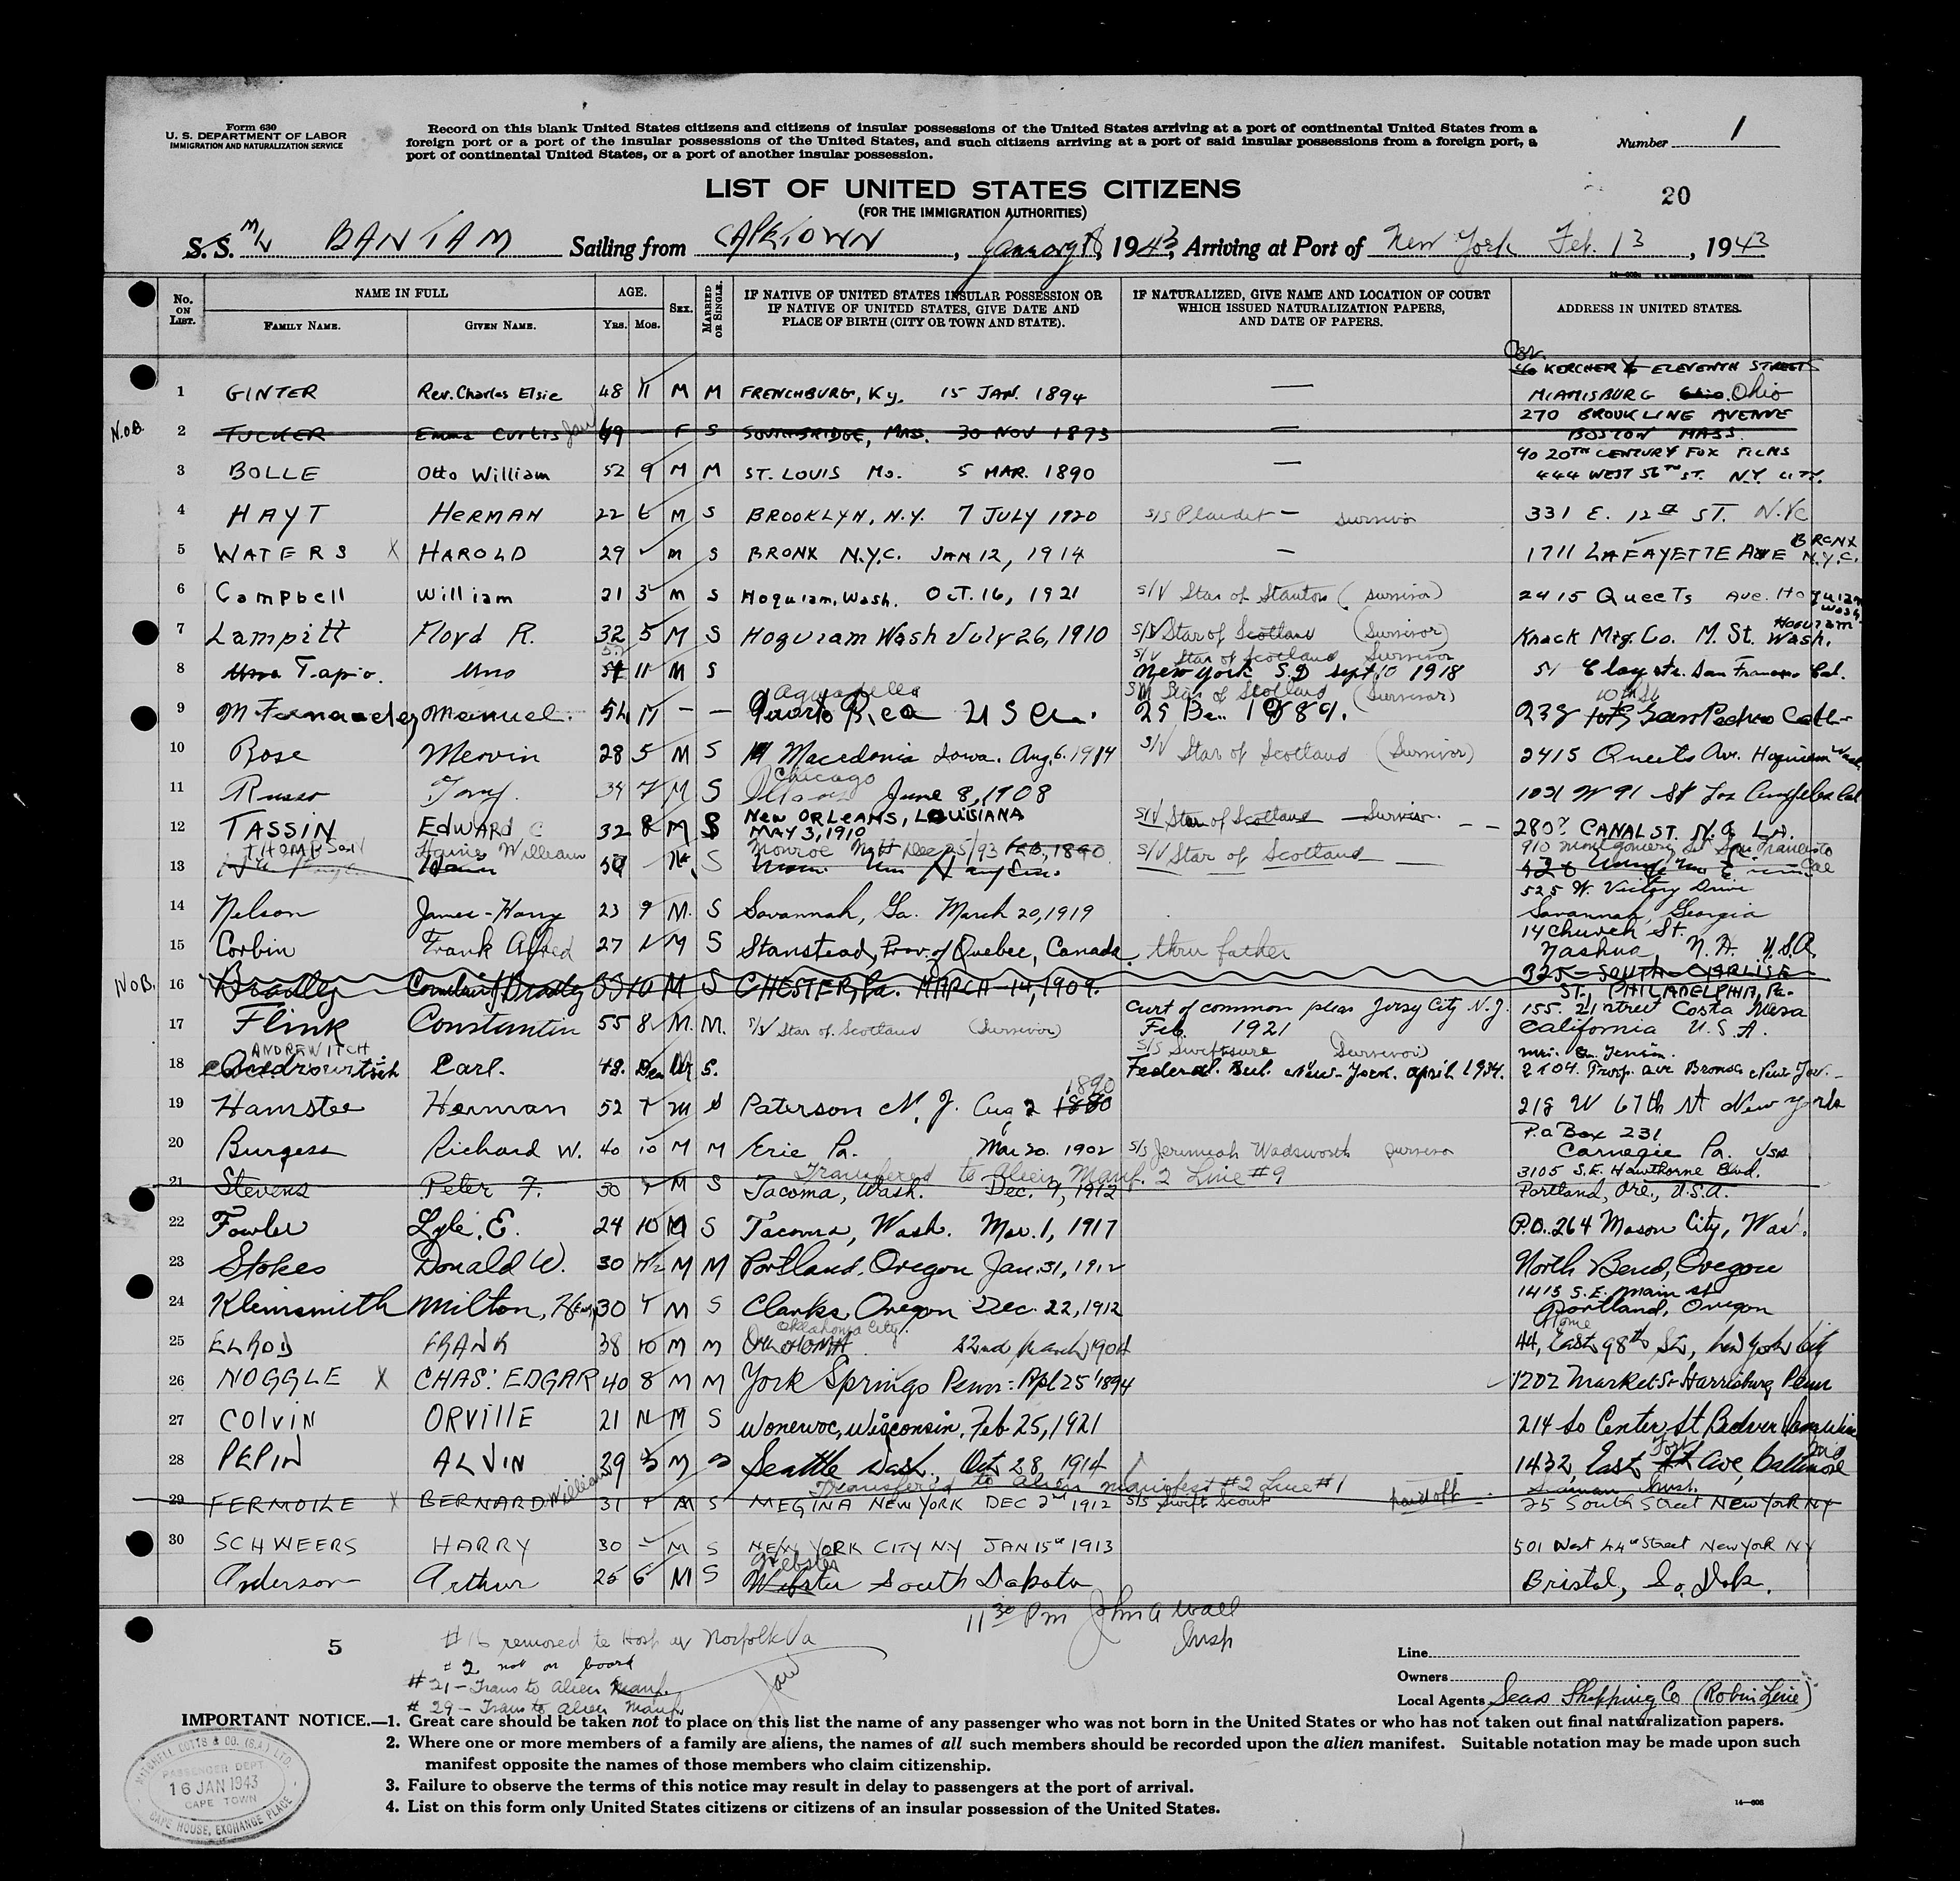 Form 630
U. S. DEPARTMENT OF LABOR
IMMIGRATION AND NATURALIZATION SERVICE
Record on this blank United States citizens and citizens of insular possessions of the United States arriving at a port of continental United States from a
foreign port or a port of the insular possessions of the United States, and such citizens arriving at a port of said insular possessions from a foreign port, a
port of continental United States, or a port of another insular possession.
Number 1
LIST OF UNITED STATES CITIZENS
(FOR THE IMMIGRATION AUTHORITIES)
20
S. S. M/V BANTAM Sailing from CAPETOWN, January 18, 1943, Arriving at Port of New York Feb. 13, 1943
No. ON LIST. NAME IN FULL AGE. SEX. MARRIED OR SINGLE. IF NATIVE OF UNITED STATES INSULAR POSSESSION OR IF NATIVE OF UNITED STATES, GIVE DATE AND PLACE OF BIRTH (CITY OR TOWN AND STATE). IF NATURALIZED, GIVE NAME AND LOCATION OF COURT WHICH ISSUED NATURALIZATION PAPERS, AND DATE OF PAPERS. ADDRESS IN UNITED STATES.
FAMILY NAME. GIVEN NAME. YRS. MOS.
Cor. KERCHER & ELEVENTH STREETS
1 GINTER Rev. Charles Elsie 48 11 M M FRENCHBURG, Ky. 15 JAN. 1894 — MIAMISBURG Ohio
270 BROOKLINE AVENUE
N.O.B. 2 TUCKER Emma Curtis 49 - F S SOUTHBRIDGE, MASS. 30 NOV 1893 — BOSTON MASS.
c/o 20TH CENTURY FOX FILMS
3 BOLLE Otto William 52 9 M M ST. LOUIS Mo. 5 MAR. 1890 — 444 WEST 56TH ST. N.Y. CITY.
4 HAYT HERMAN 22 6 M S BROOKLYN, N.Y. 7 JULY 1920 S/S Plaudit — Survivor 331 E. 12th ST. N.Y.C
5 WATERS X HAROLD 29 M S BRONX N.Y.C. JAN 12, 1914 — 1711 LAFAYETTE AVE BRONX N.Y.C.
6 Campbell William 21 3 M S Hoquiam, Wash. OCT. 16, 1921 S/V Star of Stanton (Survivor) 2415 Queets Ave. Hoquiam Wash.
7 Lampitt Floyd R. 32 5 M S Hoquiam Wash July 26, 1910 S/V Star of Scotland (Survivor) Knack Mfg. Co. M. St. Hoquiam Wash.
S/V Star of Scotland Survivor
8 Tapio. Uno 11 M S New York S.D sept 10 1918 51 Clay str. San Francisco Cal.
Aguadella S/V Star of Scotland (Survivor) 10th St
9 M Fernandez Manuel. 54 11 — — Puerto Rica U S A. 25 De.. 1889. 238 San Pedro Cal-
10 Rose Mervin 28 5 M S Macedonia Iowa. Aug. 6. 1914 S/V Star of Scotland (Survivor) 2415 Queets Av. Hoquiam Wash.
Chicago
11 Russo Tony. 34 7 M S Illinois June 8, 1908 1031 W 91 St Los Angeles Cal
12 TASSIN EDWARD C 32 8 M S NEW ORLEANS, LOUISIANA MAY 3, 1910 S/V Star of Scotland Survivor. 2807 CANAL ST. N.O. LA.
THOMPSON Haines William Monroe Dec 25/93 Feb., 1890 910 Montgomery St San Francisco Cal
13 S S/V Star of Scotland
525 W. Victory Drive
14 Nelson James-Harry 23 9 M. S Savannah, Ga. March 20, 1919 Savannah, Georgia
14 Church St.
15 Corbin Frank Alfred 27 M S Stanstead, Prov. of Quebec, Canada thru father Nashua N. H. U.S.A.
N.O.B. 16 Bradley 33 10 M S CHESTER, Pa. MARCH-14, 1909. 325 - SOUTH-CARLISE ST. PHILADELPHIA, Pa.
17 Flink Constantin 55 8 M. M. S/V Star of Scotland (Survivor) Curt of common pleas Jersy City N. J. Feb. 1921 155. 21 street Costa Mesa California U. S. A.
ANDREWITCH S/S Swiftsure Survivor
18 Androwitsch Carl. 48. S. Federal. New-York. april 1934. 2104. Prosp. ave Bronx New-York
19 Hamstee Herman 52 M S Paterson N. J. Aug 2 1880 1890 218 W 67th St New York
P.O Box 231
20 Burgess Richard W. 40 10 M M Erie Pa. Mar 20. 1902 S/S Jeremiah Wadsworth Survivor Carnegie Pa. USA
Transferred to Alien Manf. 2 Line #9
21 Stevens Peter F. 30 M S Tacoma, Wash. Dec. 7, 1912 3105 S.E. Hawthorne Blvd. Portland, Ore., U.S.A.
22 Fowler Lyle. E. 24 10 M S Tacoma, Wash. Mar. 1, 1917 P.O. 264 Mason City, Was.
23 Stokes Donald W. 30 M M Portland, Oregon Jan. 31, 1912 North Bend, Oregon
24 Kleinsmith Milton, Henry 30 M S Clarks, Oregon Dec. 22, 1912 1415 S.E. Main st Portland, Oregon
Oklahoma City. Home
25 ELROD FRANK 38 10 M M OKLAHOMA 22nd March 1904 44, East 98th St, New York City
26 NOGGLE X CHAS: EDGAR 40 8 M M York Springs Penn: Apl 25 1894 1202 Market St Harrisburg Penn
27 COLVIN ORVILLE 21 11 M S Wonewoc, Wisconsin, Feb 25, 1921 214 So Center St Beaver Dam
28 PEPIN ALVIN 29 3 M S Seattle Wash., Oct 28 1914 1432, East Fort Ave, Baltimore Md
Transferred to alien manifest #2 Line #1
29 FERMOILE X BERNARD William 31 M S MEGINA NEW YORK DEC 2nd 1912 S/S Swift Scout paid off 25 South Street NEW YORK NY
30 SCHWEERS HARRY 30 - M S NEW YORK CITY NY JAN 15th 1913 501 West 44th Street New York NY
Webster
Anderson Arthur 25 6 M S Webster South Dakota Bristol, So. Dak.
11 30 Pm John A Wall
Insp
5
#16 removed to Hosp at Norfolk Va
#2 not on board
#21 - Trans to Alien Manf.
#29 - Trans to Alien Manf.
Jaw
Line
Owners
Local Agents Seas Shipping Co (Robin Line)
IMPORTANT NOTICE.—1. Great care should be taken not to place on this list the name of any passenger who was not born in the United States or who has not taken out final naturalization papers.
2. Where one or more members of a family are aliens, the names of all such members should be recorded upon the alien manifest. Suitable notation may be made upon such
manifest opposite the names of those members who claim citizenship.
3. Failure to observe the terms of this notice may result in delay to passengers at the port of arrival.
4. List on this form only United States citizens or citizens of an insular possession of the United States.
MITCHELL COTTS & CO. (S.A.) LTD.
PASSENGER DEPT
16 JAN 1943
CAPE TOWN
CAPE HOUSE, EXCHANGE PLACE
14—608